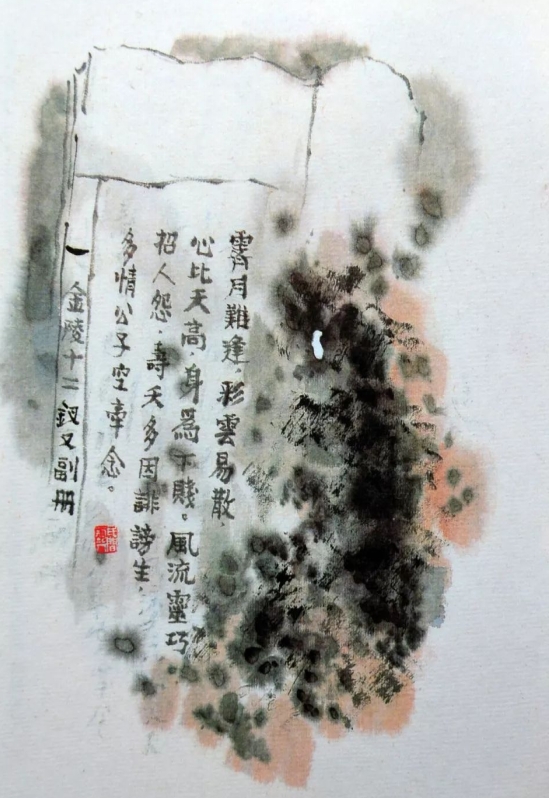 霽月難逢，彩雲易散，
心比天高，身為下賤。風流靈巧
招人怨，壽夭多因誹謗生，
多情公子空牽念。
金陵十二釵又副册